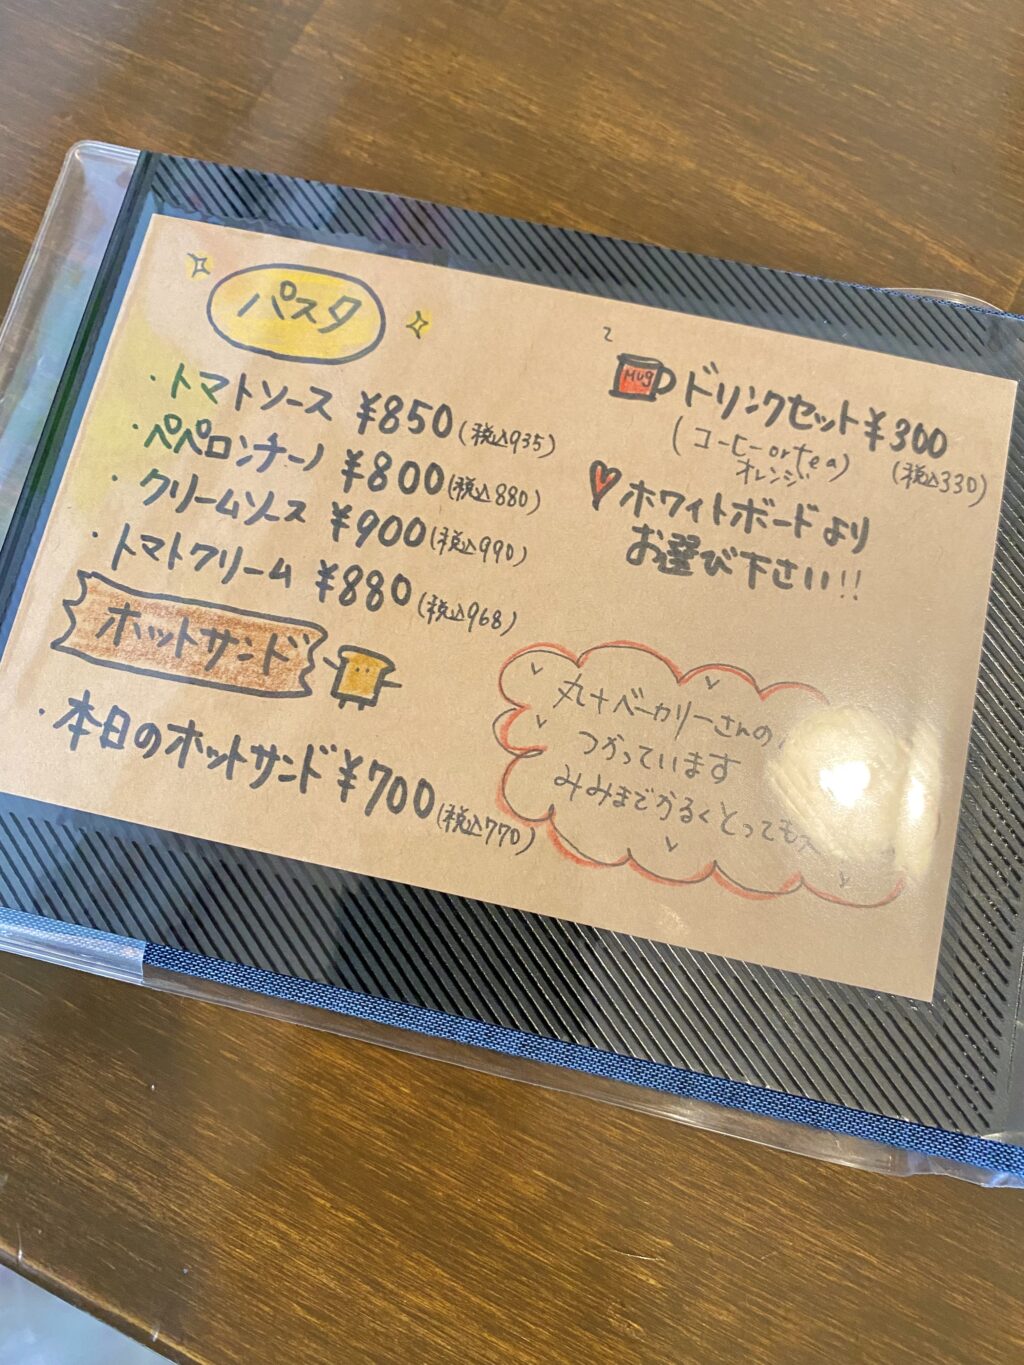 パスタ
・トマトソース ¥850(税込935)
・ペペロンチーノ ¥800(税込880)
・クリームソース ¥900(税込990)
・トマトクリーム ¥880(税込968)
ホットサンド
・本日のホットサンド ¥700(税込770)
Mug
ドリンクセット ¥300
(コーヒー or tea)
オレンジ
(税込330)
ホワイトボードより
お選び下さい!!
丸十ベーカリーさんの
つかっています
みみまでかるくとっても